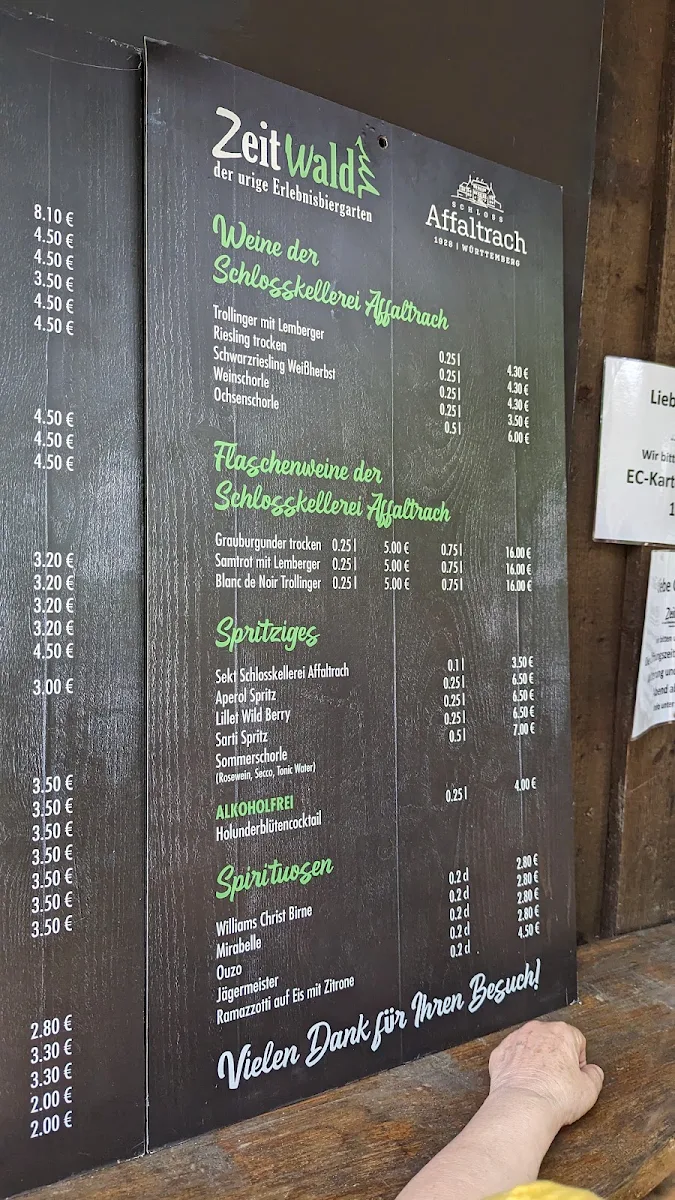 8.10 €
4.50 €
4.50 €
3.50 €
4.50 €
4.50 €
4.50 €
4.50 €
4.50 €
3.20 €
3.20 €
3.20 €
3.20 €
4.50 €
3.00 €
3.50 €
3.50 €
3.50 €
3.50 €
3.50 €
3.50 €
3.50 €
2.80 €
3.30 €
3.30 €
2.00 €
2.00 €
Zeitwald
der urige Erlebnisbiergarten
SCHLOSS
Affaltrach
1928 | WÜRTTEMBERG
Weine der
Schlosskellerei Affaltrach
Trollinger mit Lemberger 0.25 l 4.30 €
Riesling trocken 0.25 l 4.30 €
Schwarzriesling Weißherbst 0.25 l 4.30 €
Weinschorle 0.25 l 3.50 €
Ochsenschorle 0.5 l 6.00 €
Flaschenweine der
Schlosskellerei Affaltrach
Grauburgunder trocken 0.25 l 5.00 € 0.75 l 16.00 €
Samtrot mit Lemberger 0.25 l 5.00 € 0.75 l 16.00 €
Blanc de Noir Trollinger 0.25 l 5.00 € 0.75 l 16.00 €
Spritziges
Sekt Schlosskellerei Affaltrach 0.1 l 3.50 €
Aperol Spritz 0.25 l 6.50 €
Lillet Wild Berry 0.25 l 6.50 €
Sarti Spritz 0.25 l 6.50 €
Sommerschorle 0.5 l 7.00 €
(Rosewein, Secco, Tonic Water)
ALKOHOLFREI
Holunderblütencocktail 0.25 l 4.00 €
Spirituosen
Williams Christ Birne 0.2 cl 2.80 €
Mirabelle 0.2 cl 2.80 €
Ouzo 0.2 cl 2.80 €
Jägermeister 0.2 cl 2.80 €
Ramazzotti auf Eis mit Zitrone 0.2 cl 4.50 €
Vielen Dank für Ihren Besuch!
Lieb
Wir bitt
EC-Kart
1